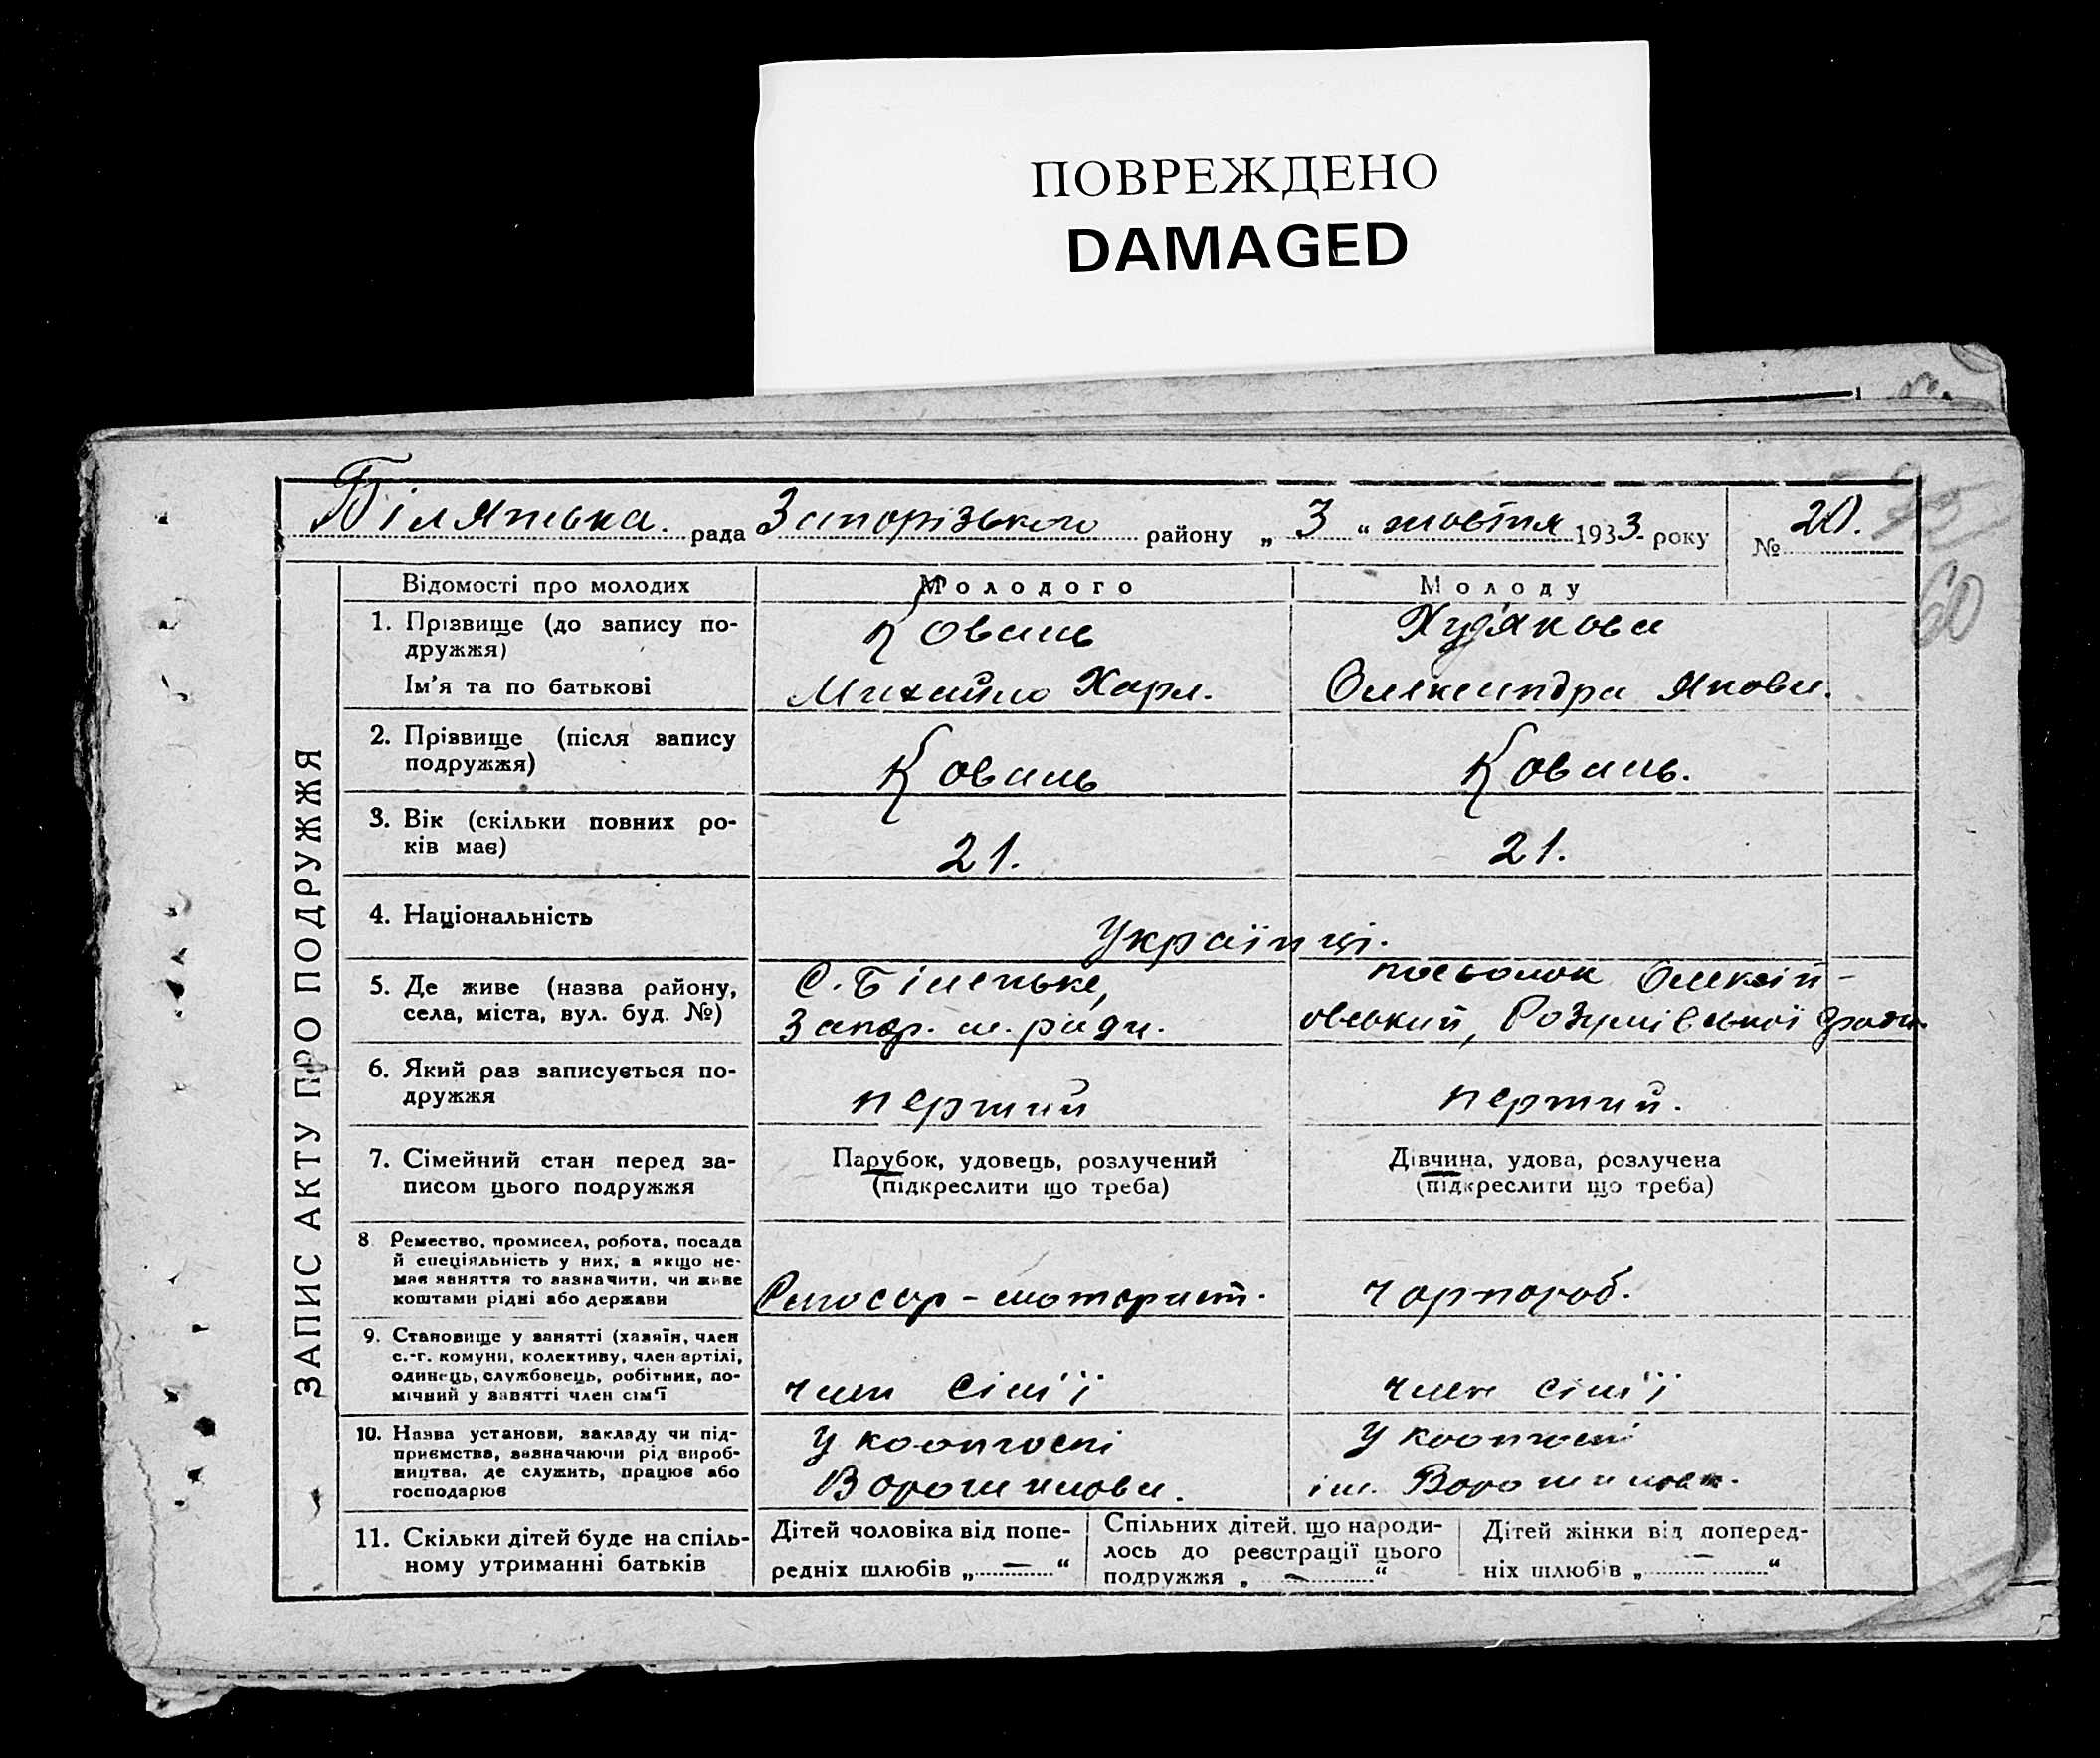 ПОВРЕЖДЕНО
DAMAGED
рада Запорізького району „ 3 “ жовтня 1933 року № 20.
60
ЗАПИС АКТУ ПРО ПОДРУЖЖЯ
Відомості про молодих Молодого Молоду
1. Прізвище (до запису по-
дружжя) Коваль Худякова
Ім’я та по батькові Михайло Харл. Олександра Яковл.
2. Прізвище (після запису
подружжя) Коваль Коваль.
3. Вік (скільки повних ро-
ків має) 21. 21.
4. Національність Українці.
5. Де живе (назва району,
села, міста, вул. буд. №)
С. Біленьке,
Запор. м. ради.
посьолок Олексій-
овський, Розумівської ради
6. Який раз записується по-
дружжя перший перший.
7. Сімейний стан перед за-
писом цього подружжя
Парубок, удовець, розлучений
(підкреслити що треба)
Дівчина, удова, розлучена
(підкреслити що треба)
8. Ремество, промисел, робота, посада
й спеціяльність у них, а якщо не-
має заняття то зазначити, чи живе
коштами рідні або держави
Слюсар - моторист. чорнороб.
9. Становище у занятті (хазяїн, член
с.-г. комуни, колективу, член артілі,
одинець, службовець, робітник, по-
мічний у занятті член сім’ї
член сім'ї член сім'ї
10. Назва установи, закладу чи під-
приємства, зазначаючи рід вироб-
ництва, де служить, працює або
господарює
У коопгоспі
Ворошилова.
У коопгоспі
ім. Ворошилова.
11. Скільки дітей буде на спіль-
ному утриманні батьків
Дітей чоловіка від попе-
редніх шлюбів „ — “
Спільних дітей, що народи-
лось до реєстрації цього
подружжя „ — “
Дітей жінки від поперед-
ніх шлюбів „ — “